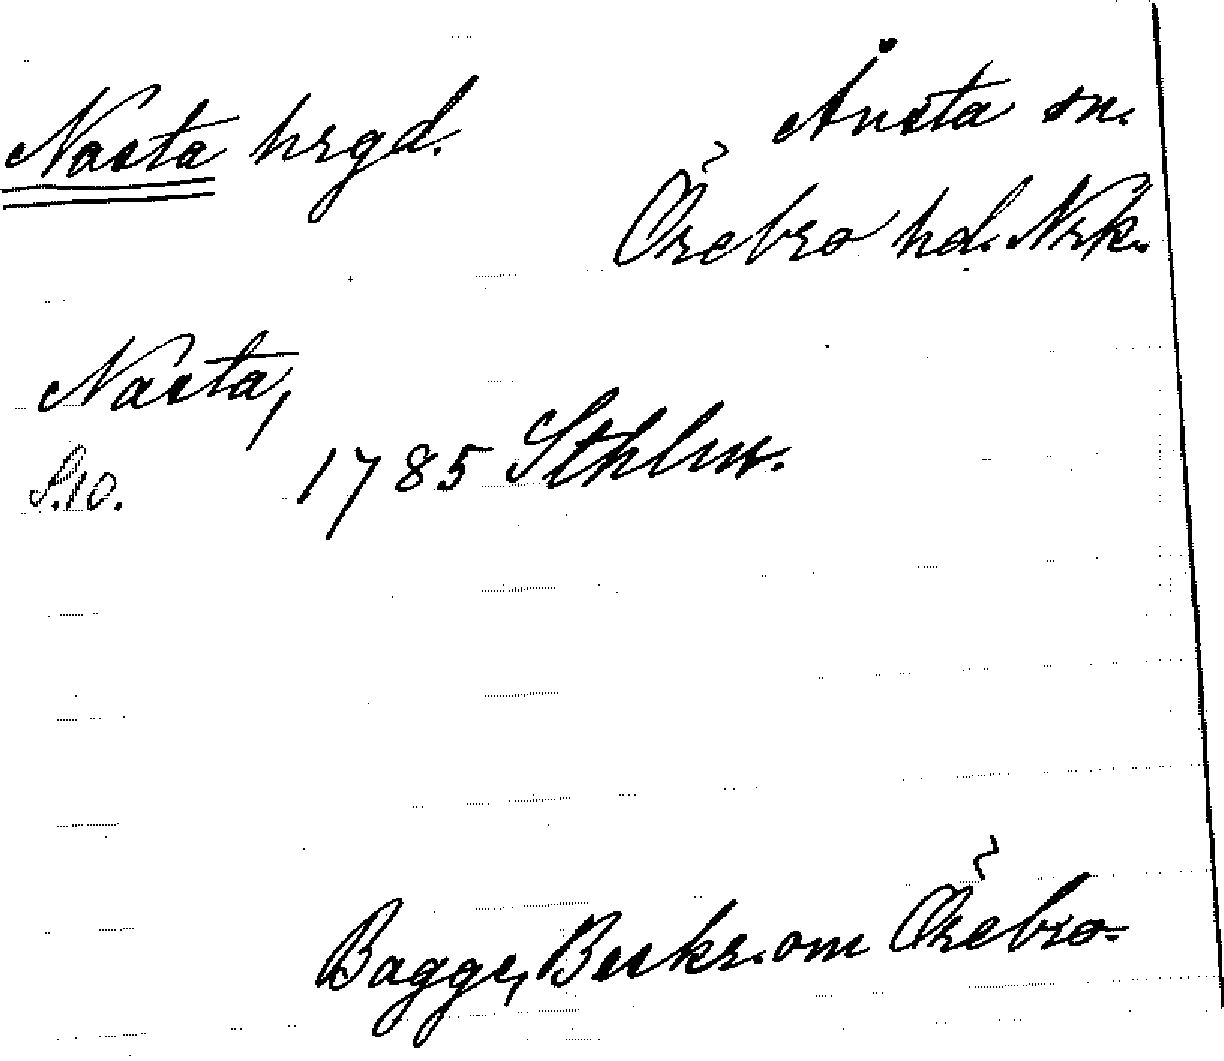 Nasta hrgd.
Ånsta sn.
Örebro hd. Nrk.
Nasta,
S.10.
1785 Sthlm.
Bagge, Beskr. om Örebro.